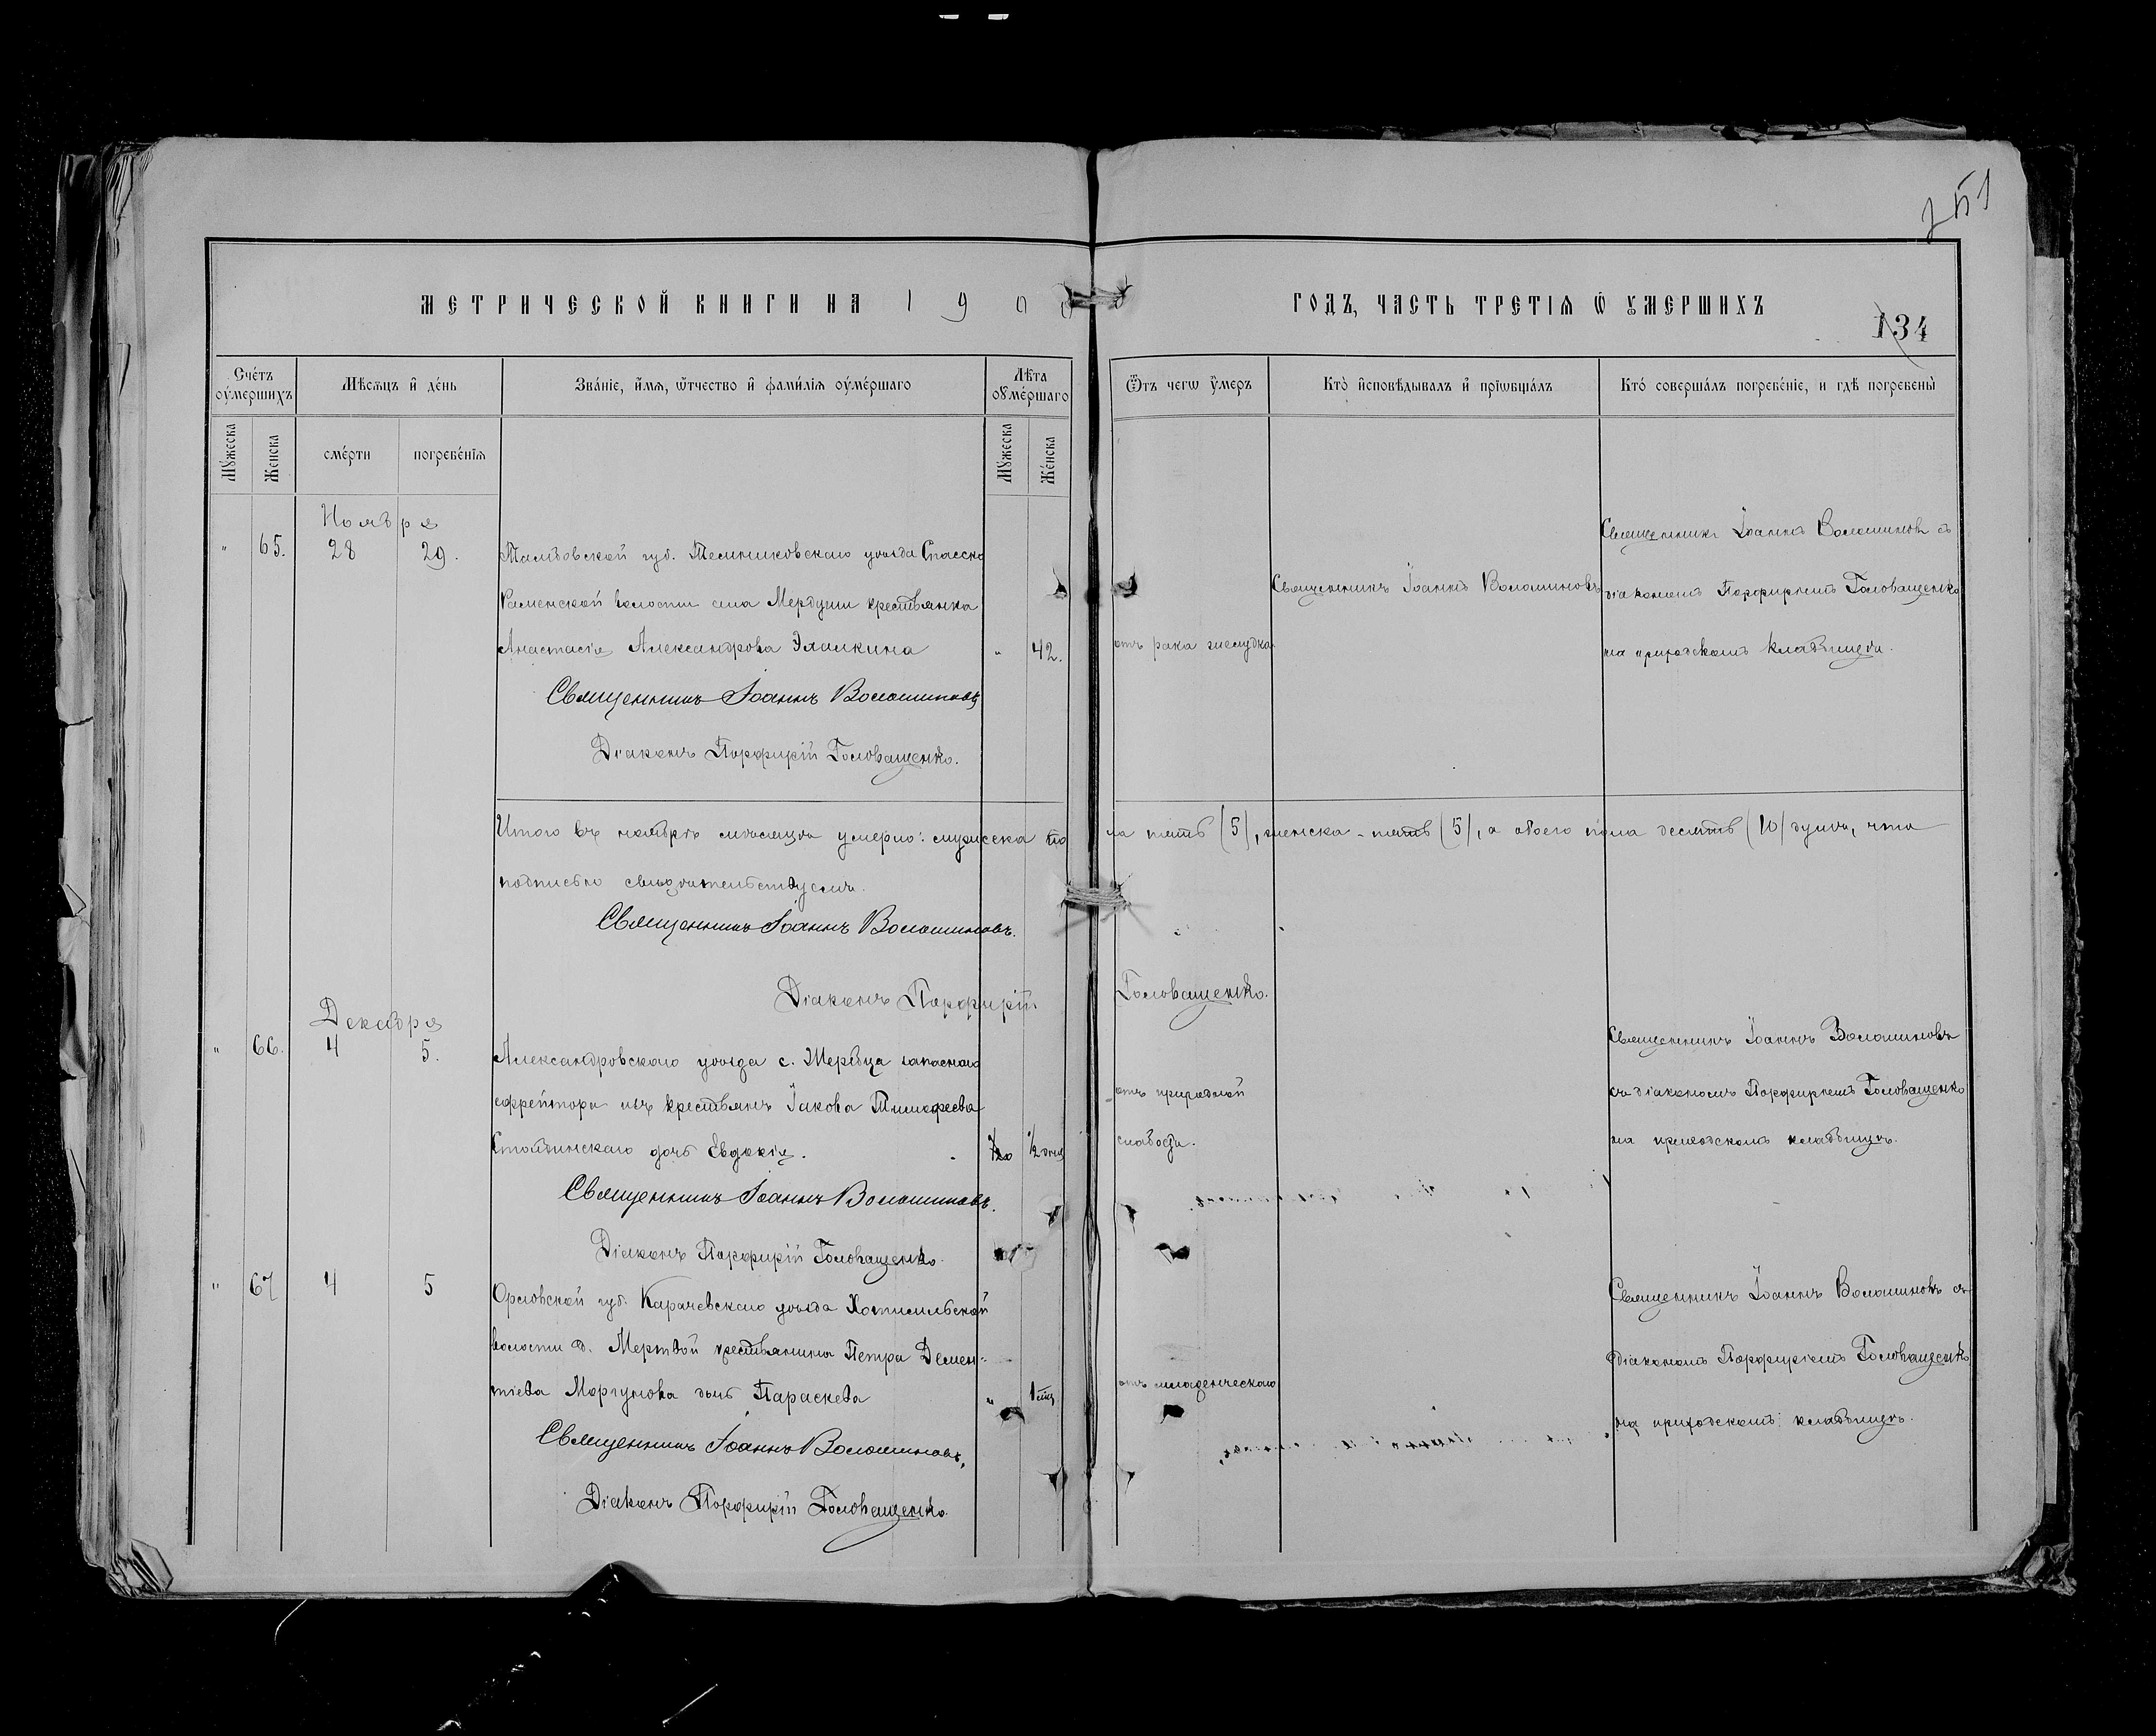 МЕТРИЧЕСКОЙ КНИГИ НА 190
ГОДЪ, ЧАСТЬ ТРЕТІѦ Ѿ ОУМЕРШИХЪ
134
Счётъ оумершихъ
Мѣсѧцъ и день
Званіе, имѧ, ѿчество и фамиліѧ оумершаго
Лѣта оумершаго
Ѿтъ чегѡ умеръ
Кто исповѣдывалъ и пріѡбщалъ
Кто совершалъ погребеніе, и гдѣ погребены
Мужеска
Женска
смерти
погребеніѧ
Мужеска
Женска
Ноября
" 65. 28 29.
Тамбовской губ. Темниковскаго уѣзда Спасско
Раменской волости села Мердуши крестьянка
Анастасія Александрова
" 42.
отъ рака желудка
Священникъ Іоаннъ Волошиновъ
Священникъ Іоаннъ Волошиновъ съ
діакономъ Порфиріемъ Головащенко
на приходскомъ кладбищѣ.
Священникъ Іоаннъ Волошиновъ
Діаконъ Порфирій Головащенко.
Итого въ ноябрѣ мѣсяцѣ умерло: мужеска по
ла пять (5), женска - пять (5), а обоего пола десять (10) душъ, что
подписью свидѣтельствуемъ.
Священникъ Іоаннъ Волошиновъ.
Діаконъ Порфирій
Головащенко.
Декабря
" 66. 4 5.
Александровскаго уѣзда с. Жеребца запаснаго
ефрейтора изъ крестьянъ Іакова Тимофеева
дочь Евдокія.
1/2 дня
отъ природной
слабости.
Священникъ Іоаннъ Волошиновъ
съ діакономъ Порфиріемъ Головащенко
на приходскомъ кладбищѣ.
Священникъ Іоаннъ Волошиновъ.
Діаконъ Порфирій Головащенко.
" 67 4 5
Орловской губ. Карачевскаго уѣзда Хотимльской
волости д. Мертвой крестьянина Петра Демен-
тіева Моргунова дочь Параскева
" 1 мѣц
отъ младенческаго
Священникъ Іоаннъ Волошиновъ съ
діакономъ Порфиріемъ Головащенко
на приходскомъ кладбищѣ.
Священникъ Іоаннъ Волошиновъ.
Діаконъ Порфирій Головащенко.